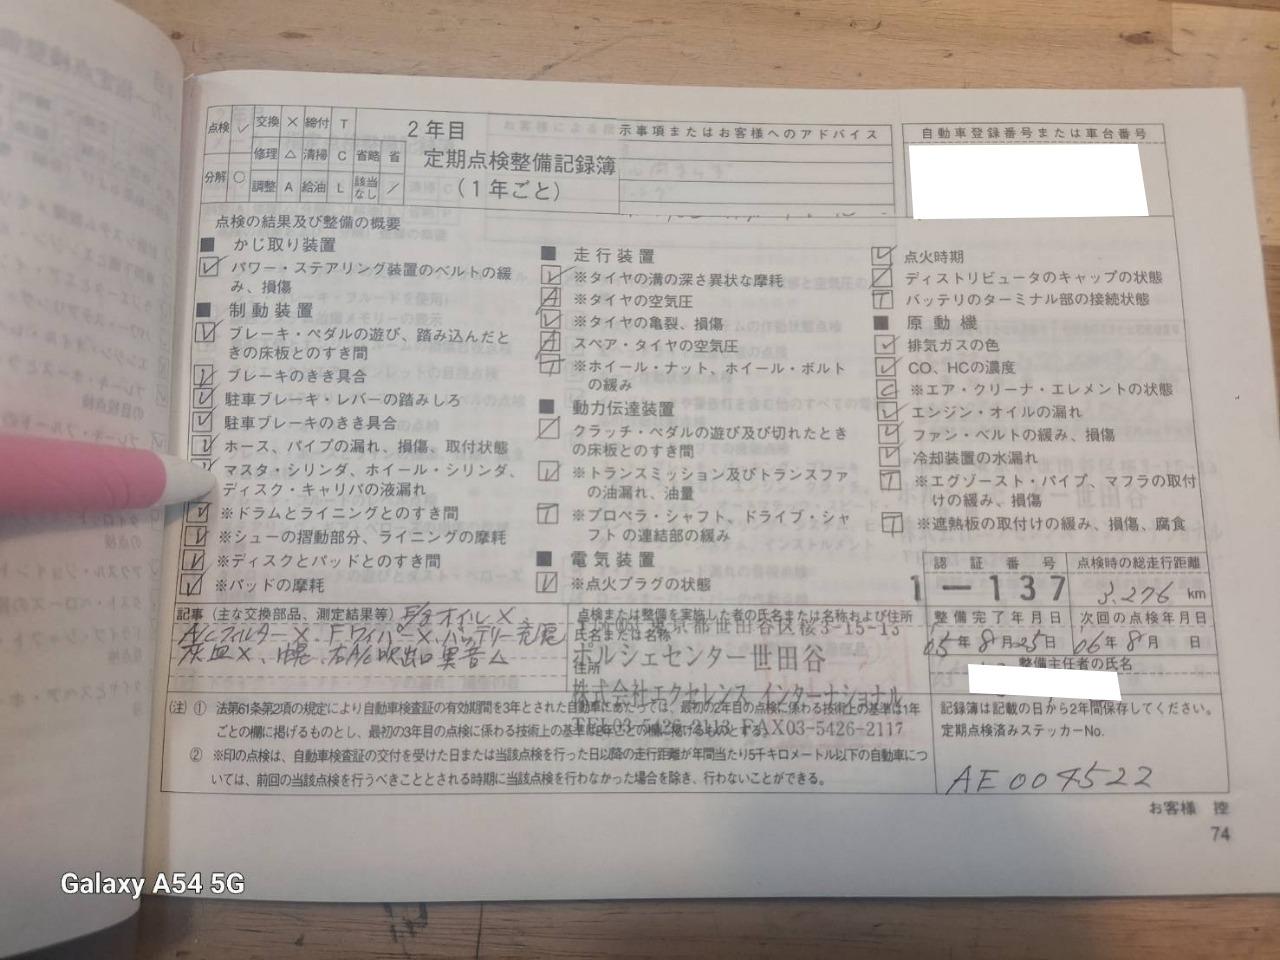 点検 ✓ 交換 × 締付 T
修理 △ 清掃 C 省略 省
分解 ○ 調整 A 給油 L 該当なし ／
2年目
定期点検整備記録簿
(1年ごと)
示事項またはお客様へのアドバイス
自動車登録番号または車台番号
点検の結果及び整備の概要
■ かじ取り装置
パワー・ステアリング装置のベルトの緩
み、損傷
■ 制動装置
ブレーキ・ペダルの遊び、踏み込んだと
きの床板とのすき間
ブレーキのきき具合
駐車ブレーキ・レバーの踏みしろ
駐車ブレーキのきき具合
ホース、パイプの漏れ、損傷、取付状態
マスタ・シリンダ、ホイール・シリンダ、
ディスク・キャリパの液漏れ
※ドラムとライニングとのすき間
※シューの摺動部分、ライニングの摩耗
※ディスクとパッドとのすき間
※パッドの摩耗
■ 走行装置
※タイヤの溝の深さ異状な摩耗
※タイヤの空気圧
※タイヤの亀裂、損傷
スペア・タイヤの空気圧
※ホイール・ナット、ホイール・ボルト
の緩み
■ 動力伝達装置
クラッチ・ペダルの遊び及び切れたとき
の床板とのすき間
※トランスミッション及びトランスファ
の油漏れ、油量
※プロペラ・シャフト、ドライブ・シャ
フトの連結部の緩み
■ 電気装置
※点火プラグの状態
点火時期
ディストリビュータのキャップの状態
バッテリのターミナル部の接続状態
■ 原動機
排気ガスの色
CO、HCの濃度
※エア・クリーナ・エレメントの状態
エンジン・オイルの漏れ
ファン・ベルトの緩み、損傷
冷却装置の水漏れ
※エグゾースト・パイプ、マフラの取付
けの緩み、損傷
※遮熱板の取付けの緩み、損傷、腐食
認証番号
1-137
点検時の総走行距離
3,276 km
記事(主な交換部品、測定結果等) オイル×
A/Cフィルター×、Fワイパー×、バッテリー充電
灰皿×、幌、右A/C吹出口異音△
点検または整備を実施した者の氏名または名称および住所
東京都世田谷区桜3-15-13
氏名または名称
ポルシェセンター世田谷
住所
株式会社エクセレンス インターナショナル
TEL03-5426-2113 FAX03-5426-2117
整備完了年月日
05年8月25日
次回の点検年月日
06年8月 日
整備主任者の氏名
(注) ① 法第61条第2項の規定により自動車検査証の有効期間を3年とされた自動車にあたっては、最初の2年目の点検に係わる技術上の基準は1年
ごとの欄に掲げるものとし、最初の3年目の点検に係わる技術上の基準は2年ごとの欄に掲げるものとする。
② ※印の点検は、自動車検査証の交付を受けた日または当該点検を行った日以降の走行距離が年間当たり5千キロメートル以下の自動車につ
いては、前回の当該点検を行うべきこととされる時期に当該点検を行わなかった場合を除き、行わないことができる。
記録簿は記載の日から2年間保存してください。
定期点検済みステッカーNo.
AE004522
お客様 控
74
Galaxy A54 5G